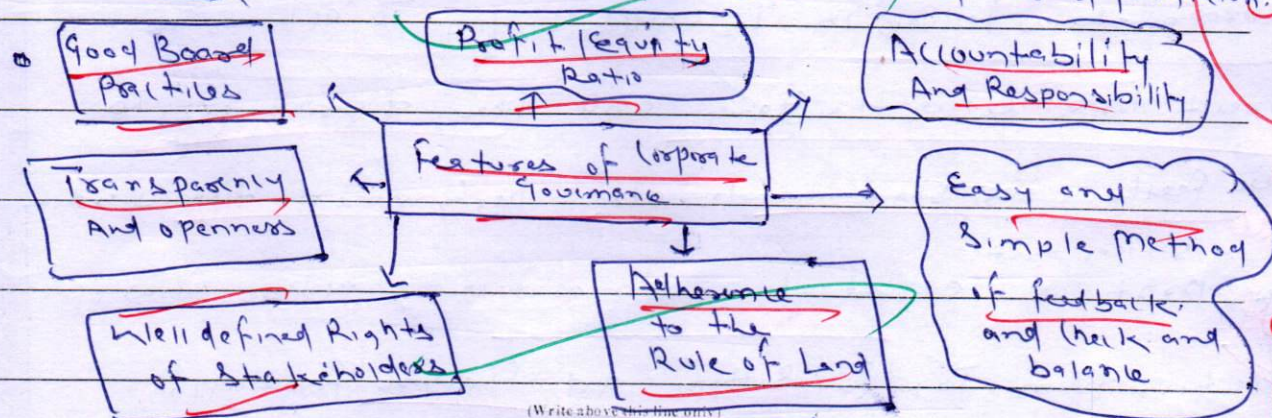 Good Board
Practices
Profit/Equity
Ratio
Accountability
And Responsibility
Features of Corporate
Governance
Transparency
And openness
Easy and
Simple Method
of feedback
and Check and
balance
Well defined Rights
of Stakeholders
Adherence
to the
Rule of Land
(Write above this line only)